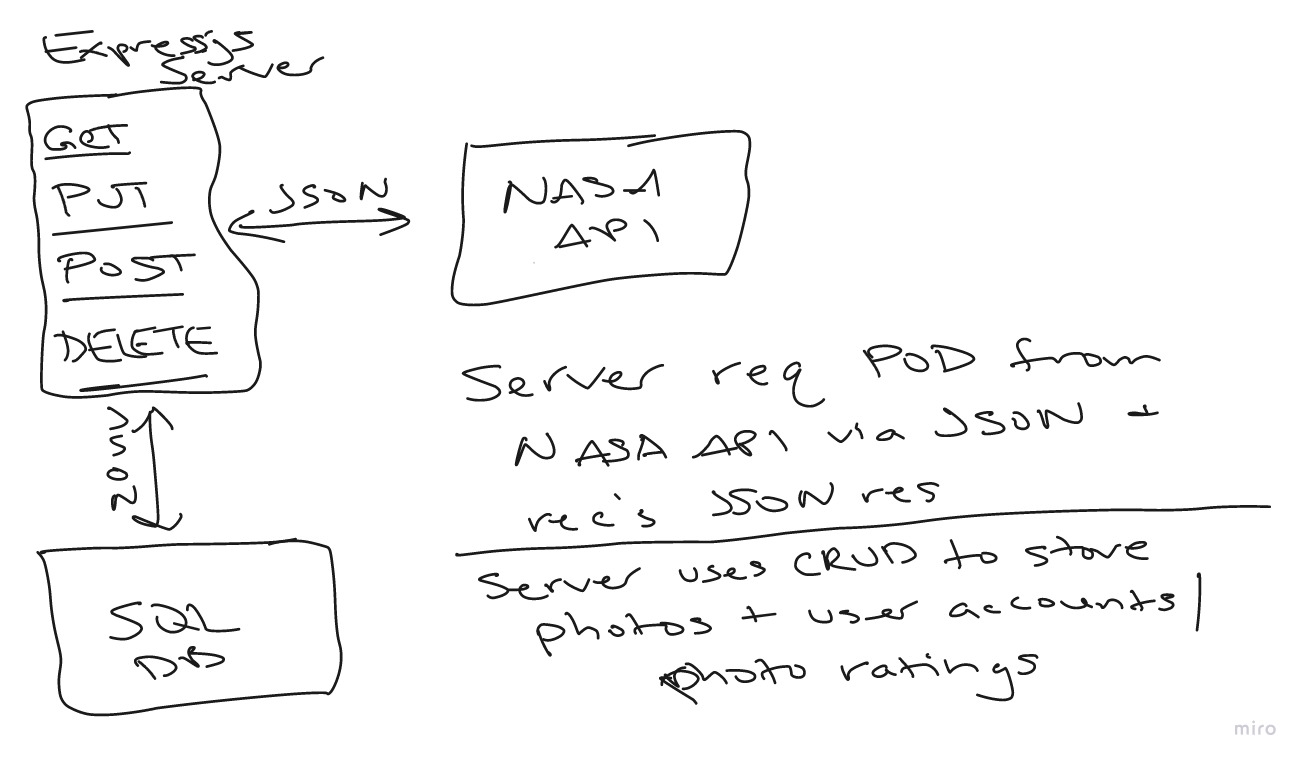 Expressjs
Server
GET
PUT
POST
DELETE
JSON
NASA
API
JSON
SQL
DB
Server req POD from
NASA API via JSON +
rec's JSON res
Server uses CRUD to store
photos + user accounts/
photo ratings
miro